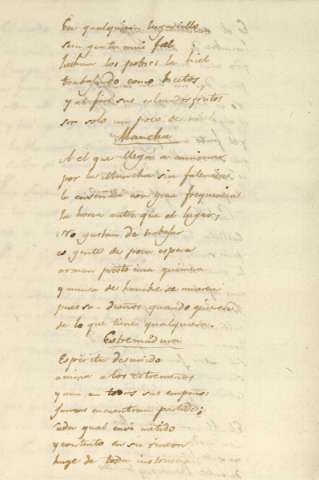 En qualquiera lugarcillo
sin gente mui fiel
los pobres la hiel
trabajando como
y al fin sus frutos
son solo un poco de
Mancha
A el que llega a caminar
por la Mancha sin
le enseñan con gran frequencia
la horca antes que el lugar;
No gustan de trabajar
es gente de poca espera
arman presto una quimera
y nunca de hambre se mueren
pues son dueños quando quieren
de lo que tiene qualquiera.
Estremadura
Espiritu desunido
anima a los estremeños
y aun en todos sus empeños
jamas encuentran partido;
cada qual está metido
y contento en su rincon
huye de toda instruccion